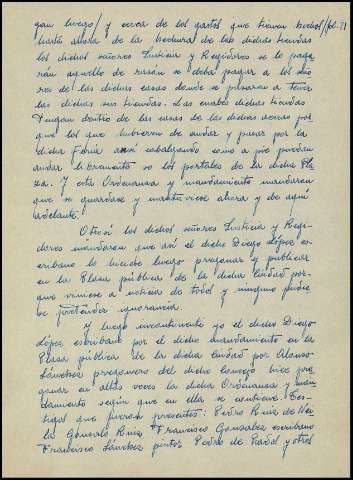 gan luego / y cerca de los gastos que tienen hechos // fol. 71
hasta ahora de la hechura de las dichas tiendas
los dichos señores Justicia y Regidores se lo paga-
rán aquello de rason se deba pagar a los due-
ños de las dichas casas donde se pasaren a tener
las dichas sus tiendas. Las cuales dichas tiendas
tengan dentro de las casas de las dichas aceras por
que los que hubieren de andar y pasar por la
dicha Feria assi cabalgando como a pié puedan
andar libremente so los portales de la dicha Pla
za. Y esta Ordenanza y mandamiento mandaron
que se guardase y mantuviese ahora y de aquí
adelante.
Otrosí los dichos señores Justicia y Regi-
dores mandaron que así el dicho Diego López es-
cribano lo hiciese luego pregonar y publicar
en la Plaza pública de la dicha Ciudad por-
que viniese a noticia de todos y ninguno pudie
se pretender ignorancia.
Y luego incontinente yo el dicho Diego
López escribano por el dicho mandamiento en la
Plaza pública de la dicha ciudad por Alonso
Sánchez pregonero del dicho Concejo hice pre-
gonar en altas voces la dicha Ordenanza y man-
damiento según que en ella se contiene. Tes-
tigos que fueron presentes: Pedro Ruiz de
la Gonzalo Ruiz Francisco Gonzalez escribano
Francisco Sánchez pintor Pedro de y otros